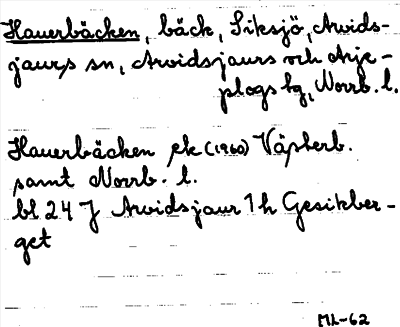 Hauerbäcken, bäck, Siksjö, Arvids-
jaurs sn, Arvidsjaurs och Arje-
plogs hg, Norrb. l.
Hauerbäcken ek (1960) Västerb.
samt Norrb. l.
bl 24 J Arvidsjaur 1 h Gesikber-
get
ML-62